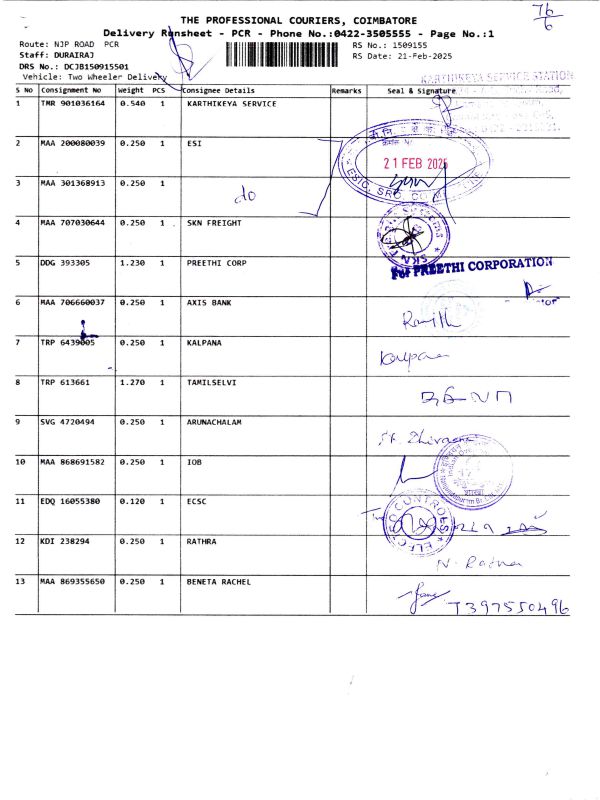 76
6
THE PROFESSIONAL COURIERS, COIMBATORE
Delivery Runsheet - PCR - Phone No.:0422-3505555 - Page No.:1
Route: NJP ROAD PCR
RS No.: 1509155
Staff: DURAIRAJ
RS Date: 21-Feb-2025
DRS No.: DCJB150915501
Vehicle: Two Wheeler Delivery
KARTHIKEYA SERVICE STATION
S No Consignment No Weight PCS Consignee Details Remarks Seal & Signature
1 TMR 901036164 0.540 1 KARTHIKEYA SERVICE
2 MAA 200080039 0.250 1 ESI
21 FEB 2025
3 MAA 301368913 0.250 1 do
4 MAA 707030644 0.250 1 SKN FREIGHT
5 DDG 393305 1.230 1 PREETHI CORP
For PREETHI CORPORATION
6 MAA 706660037 0.250 1 AXIS BANK
7 TRP 6439005 0.250 1 KALPANA
8 TRP 613661 1.270 1 TAMILSELVI
9 SVG 4720494 0.250 1 ARUNACHALAM
10 MAA 868691582 0.250 1 IOB
11 EDQ 16055380 0.120 1 ECSC
12 KDI 238294 0.250 1 RATHRA
13 MAA 869355650 0.250 1 BENETA RACHEL
7397550496